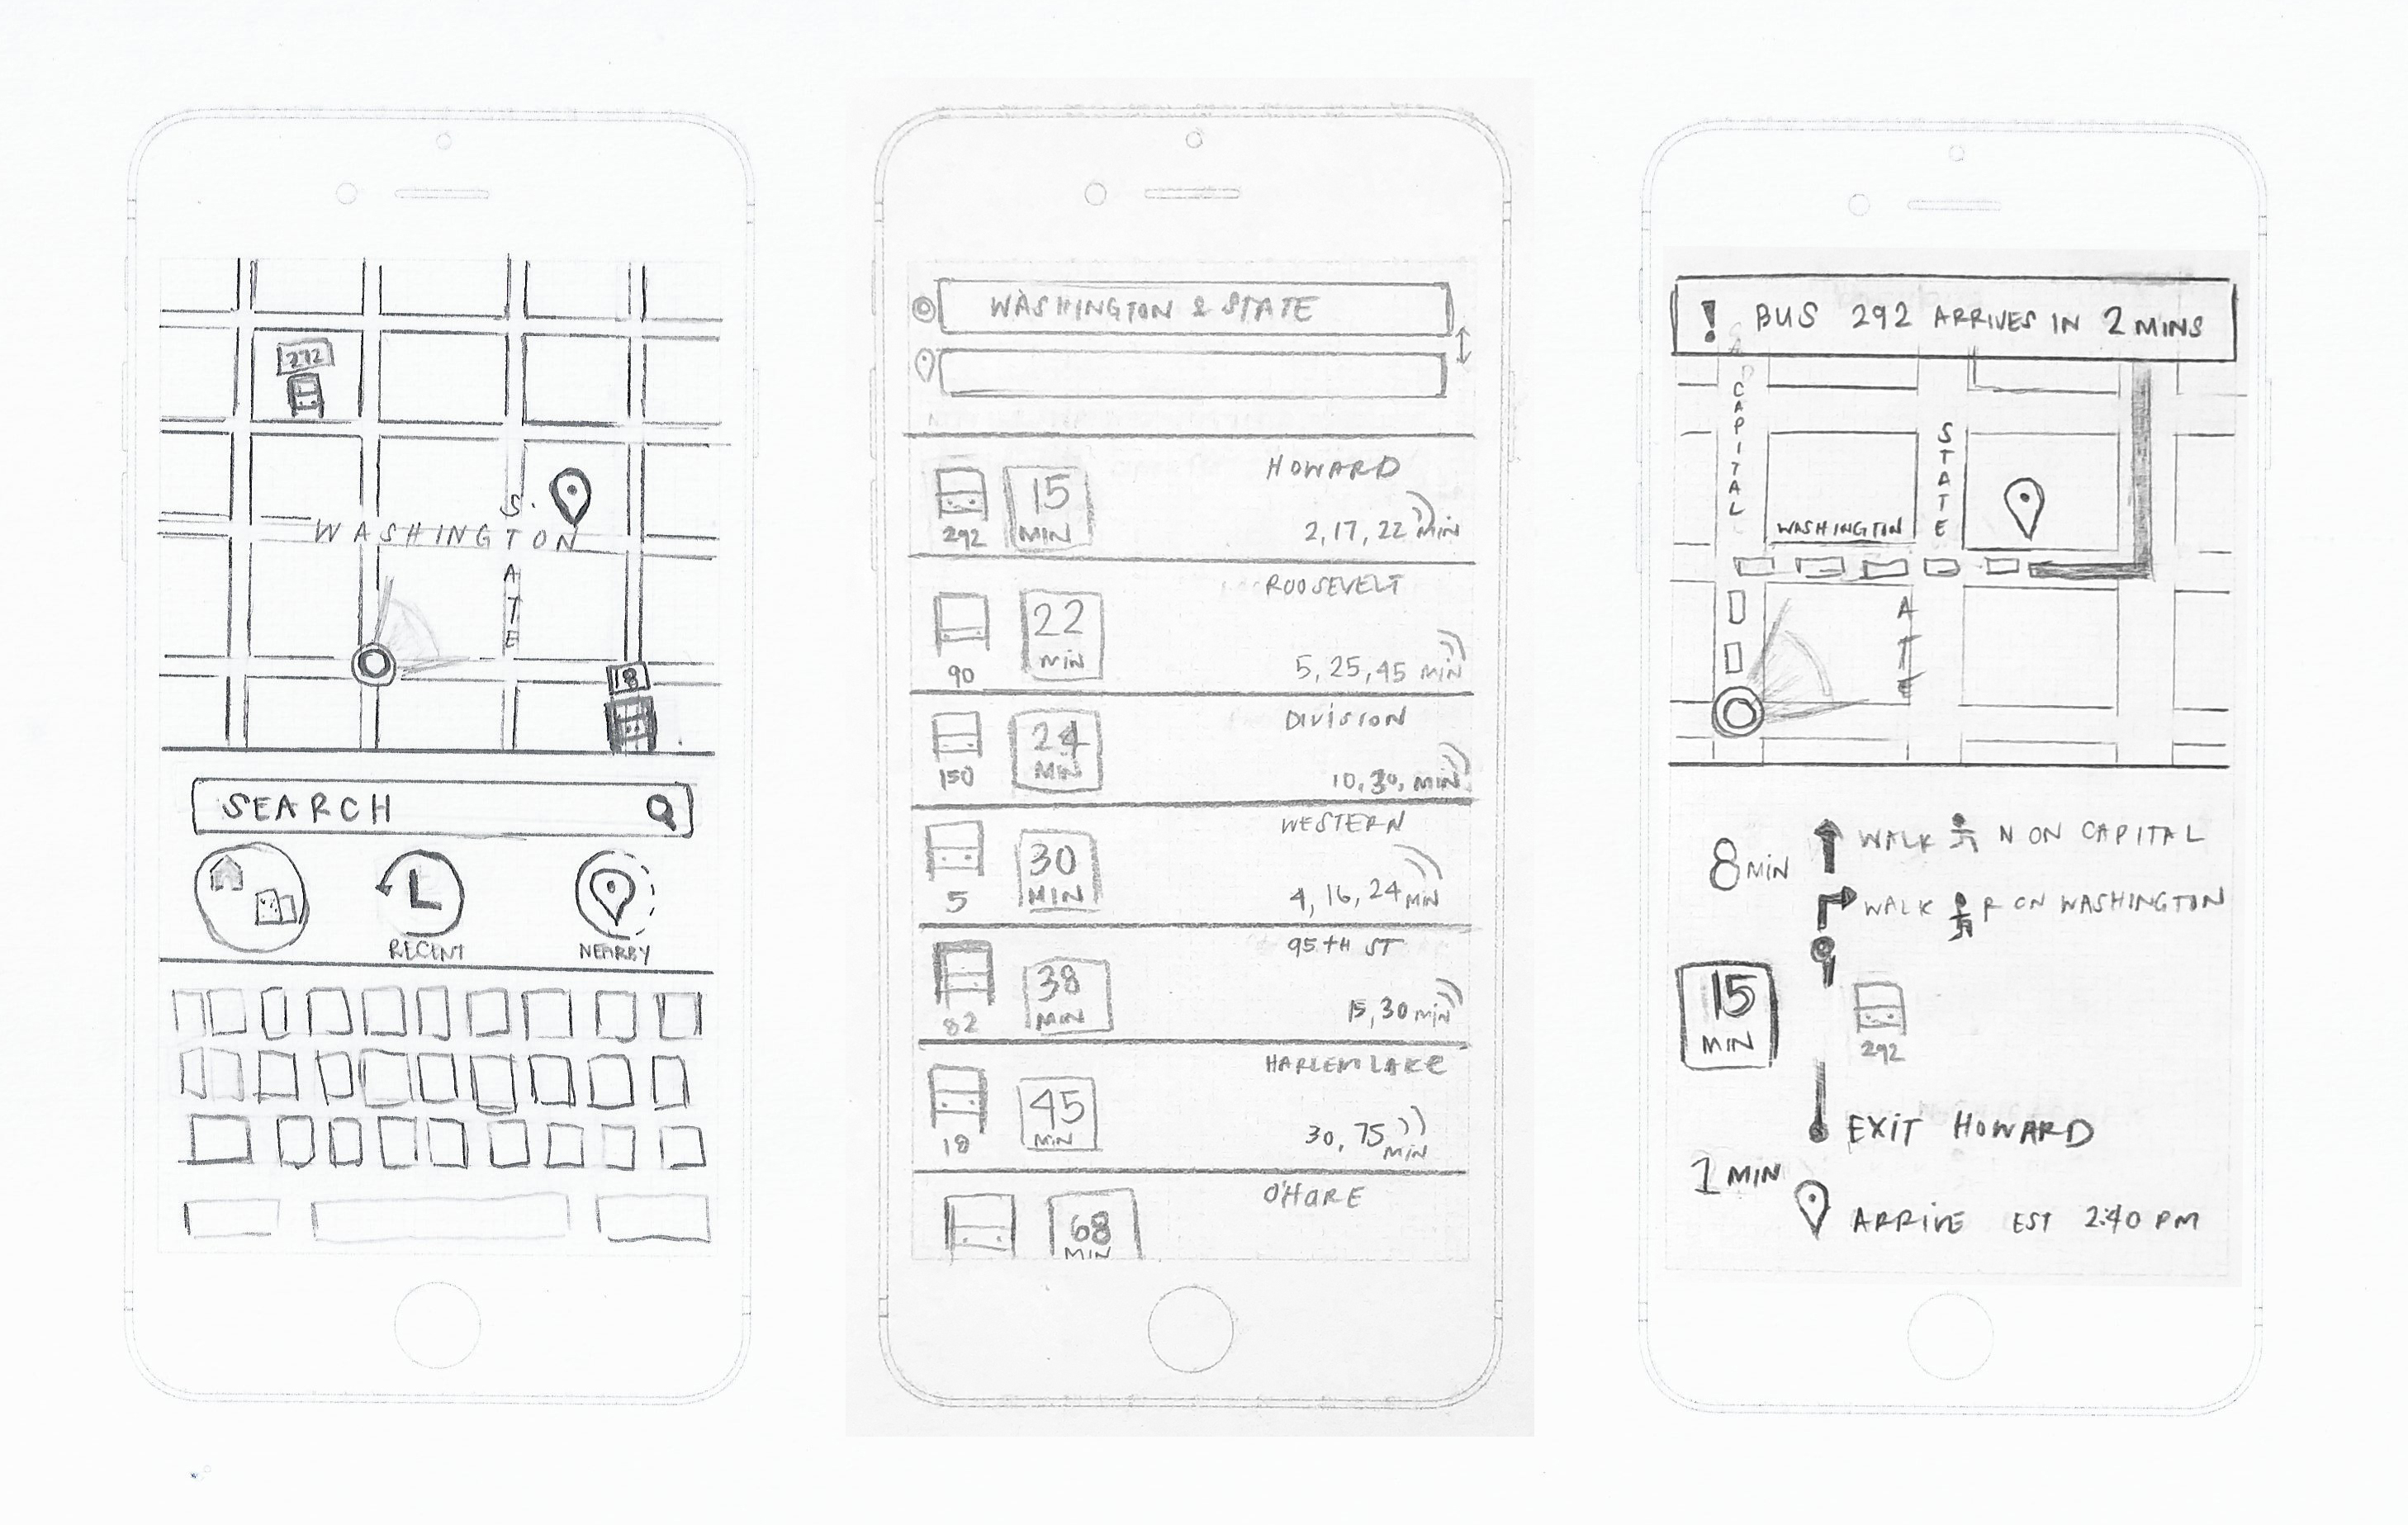 292
S
WASHINGTON
T
A
T
E
18
SEARCH
RECENT
NEARBY
WASHINGTON & STATE
HOWARD
15
MIN
292
2, 17, 22 MIN
ROOSEVELT
22
MIN
90
5, 25, 45 MIN
DIVISION
24
MIN
150
10, 30, MIN
WESTERN
30
MIN
5
4, 16, 24 MIN
95TH ST
38
MIN
82
15, 30 MIN
HARLEM LAKE
45
MIN
18
30, 75 MIN
O'HARE
68
MIN
! BUS 292 ARRIVES IN 2 MINS
CAPITAL
STATE
WASHINGTON
A
T
E
8 MIN
WALK N ON CAPITAL
WALK R ON WASHINGTON
15
MIN
292
EXIT HOWARD
1 MIN
ARRIVE EST 2:40 PM